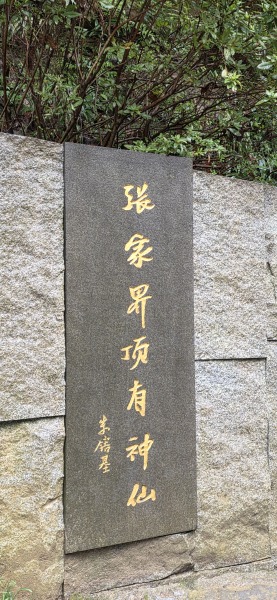 张家界顶有神仙
朱镕基